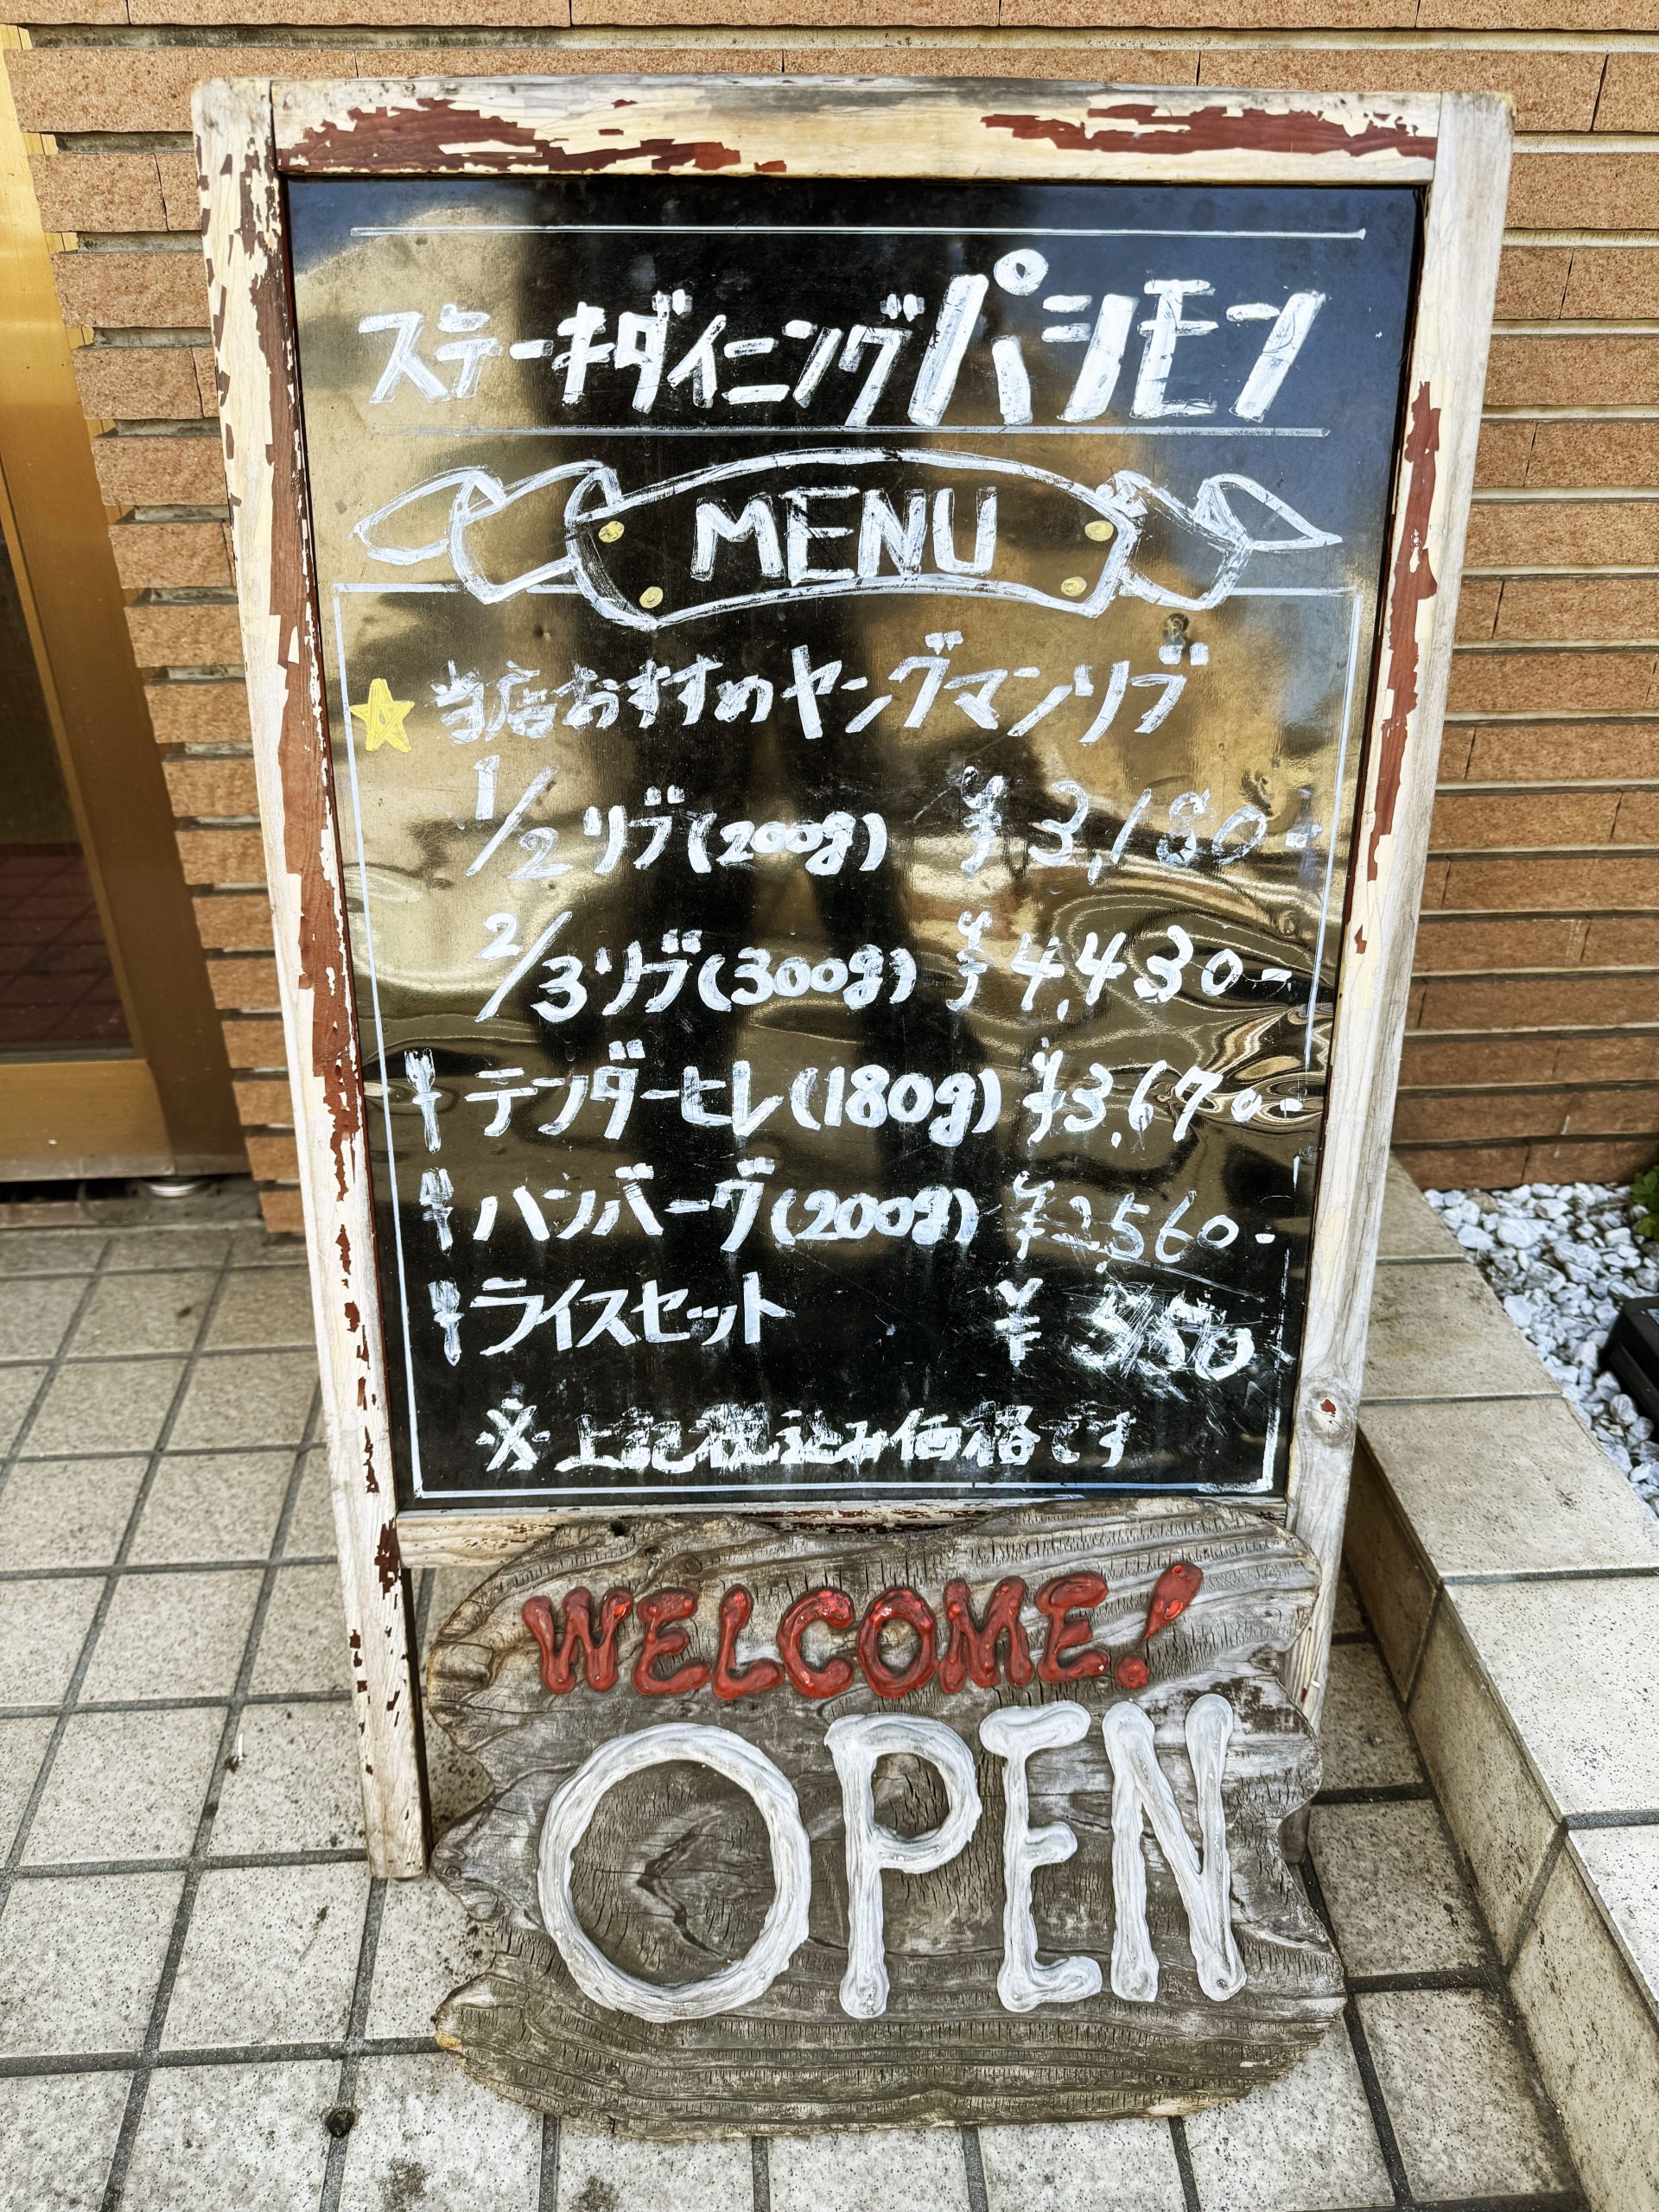 ステーキダイニングパシモン
MENU
当店おすすめヤングマンリブ
1/2リブ(200g) ¥3,180-
2/3リブ(300g) ¥4,430-
テンダーヒレ(180g) ¥3,670-
ハンバーグ(200g) ¥2,560-
ライスセット ¥550
※上記税込み価格です
WELCOME!
OPEN